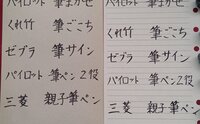 パイロット 筆まかせ
くれ竹 筆ごこち
ゼブラ 筆サイン
パイロット 筆ペン2役
三菱 親子筆ペン
パイロット 筆まかせ
くれ竹 筆ごこち
ゼブラ 筆サイン
パイロット 筆ペン2役
三菱 親子筆ペン